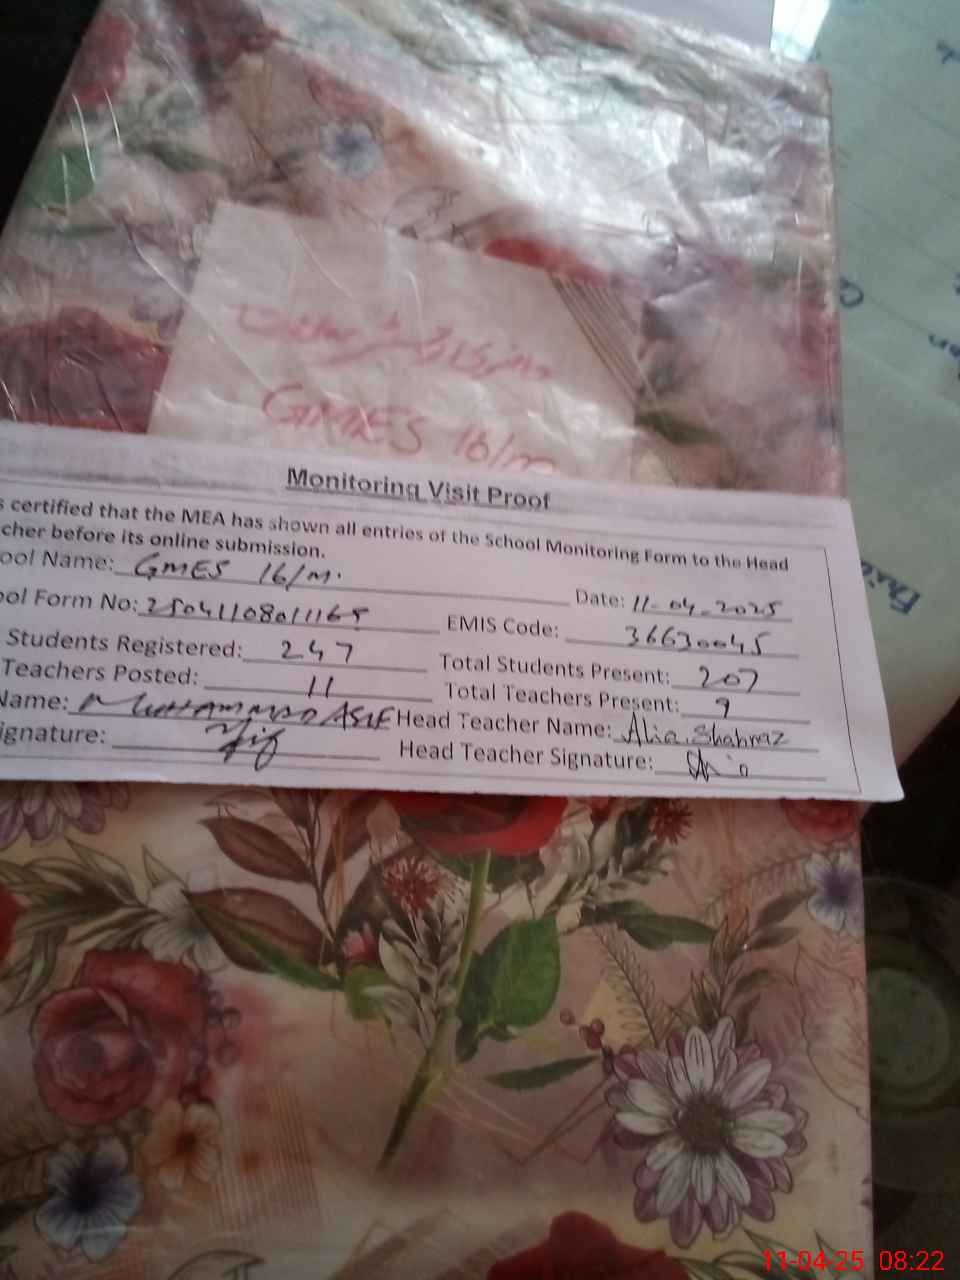 GMES 16/m
Monitoring Visit Proof
s certified that the MEA has shown all entries of the School Monitoring Form to the Head
cher before its online submission.
ool Name: GMES 16/M.
Date: 11-04-2025
ool Form No: 2504110801165
EMIS Code: 36630045
Students Registered: 247
Total Students Present: 207
Teachers Posted: 11
Total Teachers Present: 9
Name: MUHAMMAD ASIF
Head Teacher Name: Alia Shahnaz
ignature:
Head Teacher Signature:
11-04-25 08:22